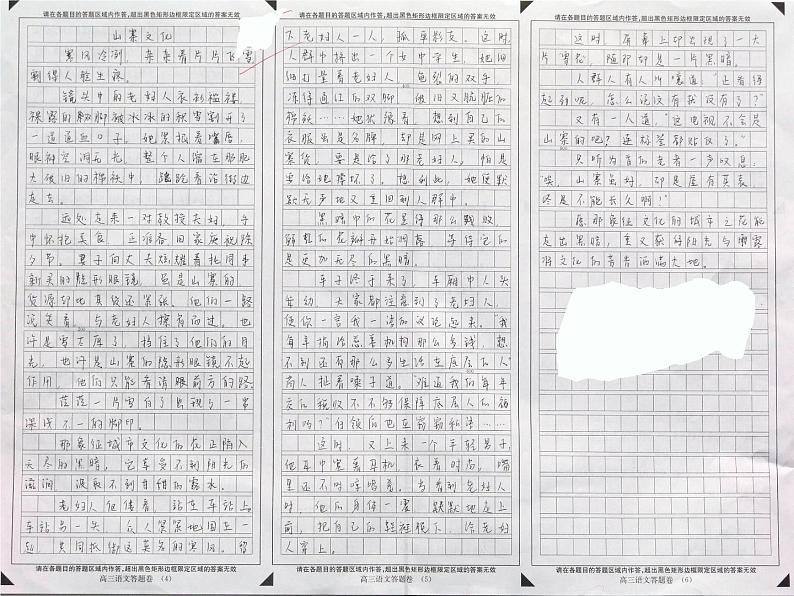 请在各题目的答题区域内作答,超出黑色矩形边框限定区域的答案无效
山寨文化
寒风冷冽，亲亲着片片飞雪，
割得人脸生疼。
镜头中的老妇人衣衫褴褛，
裸露的双脚被冰冰的积雪割开了
一道道血口子。她紧抿着嘴唇，
眼神空洞无光，整个人溜在肥肥
大破旧的棉袄中，蹒跚着沿街边
走去。
远处走来一对教授夫妇，手
中怀抱美食，正准备回家庆祝除
夕节。男子向丈夫炫耀着托同事
新买的隐形眼镜，虽是山寨的
货源却比真货还紧张。他们一路
说笑着，与老妇人擦肩而过。也
许是雪太厚了，挡住了他们的目
光，也许是山寨的隐形眼镜不起
作用，他们只能看清眼前方的路。
茫茫一片雪白了出现了一串
深浅不一的脚印。
那象征城市文化的花正陷入
无尽的黑暗，它享受不到阳光的
滋润，汲取不到甘甜的露水。
老妇人倦倦着，站在车站上。
车站另一头，众人紧紧地围在一
起，共同抵御这莫名的寒风。留
请在各题目的答题区域内作答,超出黑色矩形边框限定区域的答案无效
高三语文答题卷 (4)
请在各题目的答题区域内作答,超出黑色矩形边框限定区域的答案无效
下老妇人一人，孤单影支。这时，
人群中挤出一个女中学生，她细
细打量着老妇人，皲裂的双手
冻得通红的双脚，破旧又肮脏的
棉袄……她犹豫着，想到自己的
衣服虽是名牌，却是网上买的山
寨货，要是给了那老妇人，怕是
要给她撑坏了。想到此，她便默
默无声地又重回到人群中。
黑暗中的花是得那么残败，
娇艳的花瓣开始凋落，等待它的
是更加无尽的黑暗。
车子终于来了，车厢中人头
攒动，大家都注意到了老妇人，
便你一言我一语加议论起来。“我
每年捐给慈善机构那么多钱，想
不到还有那么多生活在底层的人”
商人扯着嗓子道。“难道我们每年
交的税收不不够保障底层人们的福
利吗？”白领们也在窃窃私语……
这时，又上来一个年轻男子，
他耳中塞着耳机，衣着时尚，嘴
里还不时哼唱着，当看到老妇人
时，他的身体一震，默默地走上
前，把自己的鞋袜脱下，给老妇
人穿上。
请在各题目的答题区域内作答,超出黑色矩形边框限定区域的答案无效
高三语文答题卷 (5)
请在各题目的答题区域内作答,超出黑色矩形边框限定区域的答案无效
这时，屏幕上却出现了一大
片雪花，随即却是一片黑暗。
人群人有人所嚷道“正看得
起劲呢，怎么说没有就没有了？”
又有一人道，“这电视不会是
山寨的吧？连标签都贴反了。”
只听为首的老者一声叹息：
“唉，山寨虽好，却是虚有其表，
终是不能长久啊？”
愿那象征文化的城市之花能
走出黑暗，重又获得阳光与雨露，
将文化的芳香洒满大地。
请在各题目的答题区域内作答,超出黑色矩形边框限定区域的答案无效
高三语文答题卷 (6)